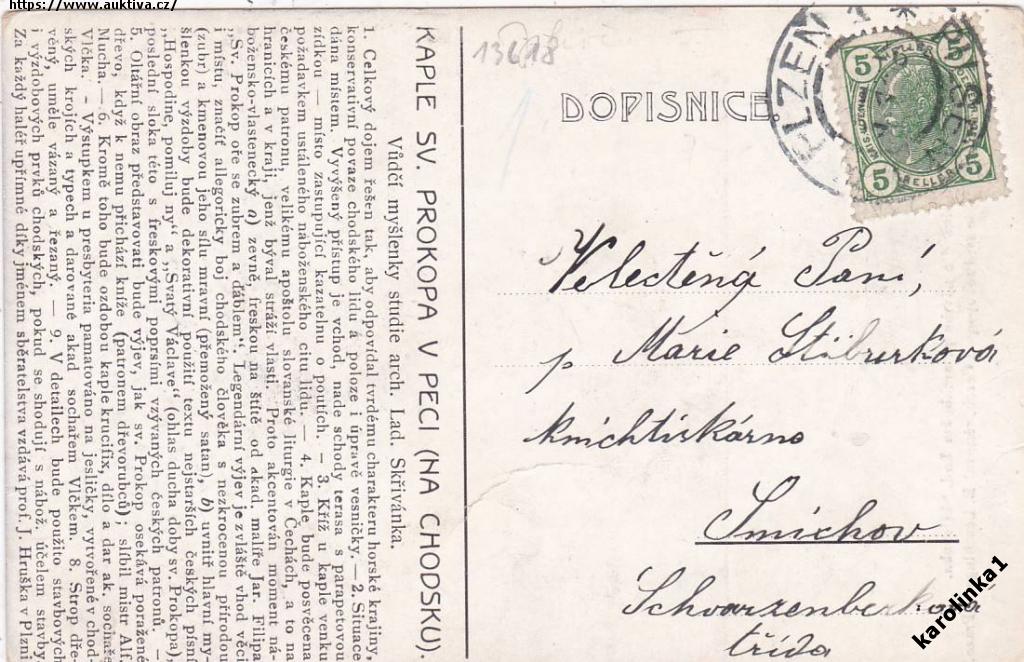 https://www.auktiva.cz/
KAPLE SV. PROKOPA V PECI (NA CHODSKU).
Vůdčí myšlenky studie arch. Lad. Skřivánka.
1. Celkový dojem řešen tak, aby odpovídal tvrdému charakteru horské krajiny,
konservativní povaze chodského lidu a poloze i úpravě vesničky. — 2. Situace
dána místem. Vyvýšený přístup je vchod, nade schody terasa s parapetovou
zídkou — místo zastupující kazatelnu o poutích. — 3. Kříž u kaple venku
požadavkem ustáleného náboženského citu lidu. — 4. Kaple bude posvěcena
českému patronu, velikému apoštolu slovanské liturgie v Čechách, a to na
hranicích a v kraji, jenž býval stráží vlasti. Proto akcentován moment ná-
božensko-vlastenecký a) zevně, freskou na štítě od akad. malíře Jar. Filipa
„Sv. Prokop oře se zubrem a ďáblem“. Legendární výjev je zvláště vhod věci
i místu, značíť allegoricky boj chodského člověka s nezkrocenou přírodou
(zubr) a kmenovou jeho sílu mravní (přemožený satan), b) uvnitř hlavní my-
šlenkou výzdoby bude dekorativní použití textu nejstarších českých písní
„Hospodine, pomiluj ny“ a „Svatý Václave“ (ohlas ducha doby sv. Prokopa),
poslední sloka této s freskovými poprsími vzývaných českých patronů. —
5. Oltářní obraz představovati bude výjev, jak sv. Prokop osekává poražené
dřevo, když k němu přichází kníže (patronem dřevorubců); slíbil mistr Alf.
Mucha. — 6. Kromě toho bude ozdobou kaple krucifix, dílo a dar ak. sochaře
Vlčka. - Výstupkem u presbyteria pamatováno na jesličky, vytvořené v chod-
ských krojích a typech a darované akad sochařem Vlčkem. 8. Strop dře-
věný, uměle vázaný a řezaný. — 9. V detailech bude použito stavbových
i výzdobových prvků chodských, pokud se shodují s nábož. účelem stavby.
Za každý haléř upřímné díky jménem sběratelstva vzdává prof. J. Hruška v Plzni
DOPISNICE
PLZEŇ 1 * PILSEN
5 5
5 5
HELLER
HELLER
Velectěná Paní,
p Marie Stüburková
knichtiskárno
Smichov
Schvarzenberkova
třída
karolinka1